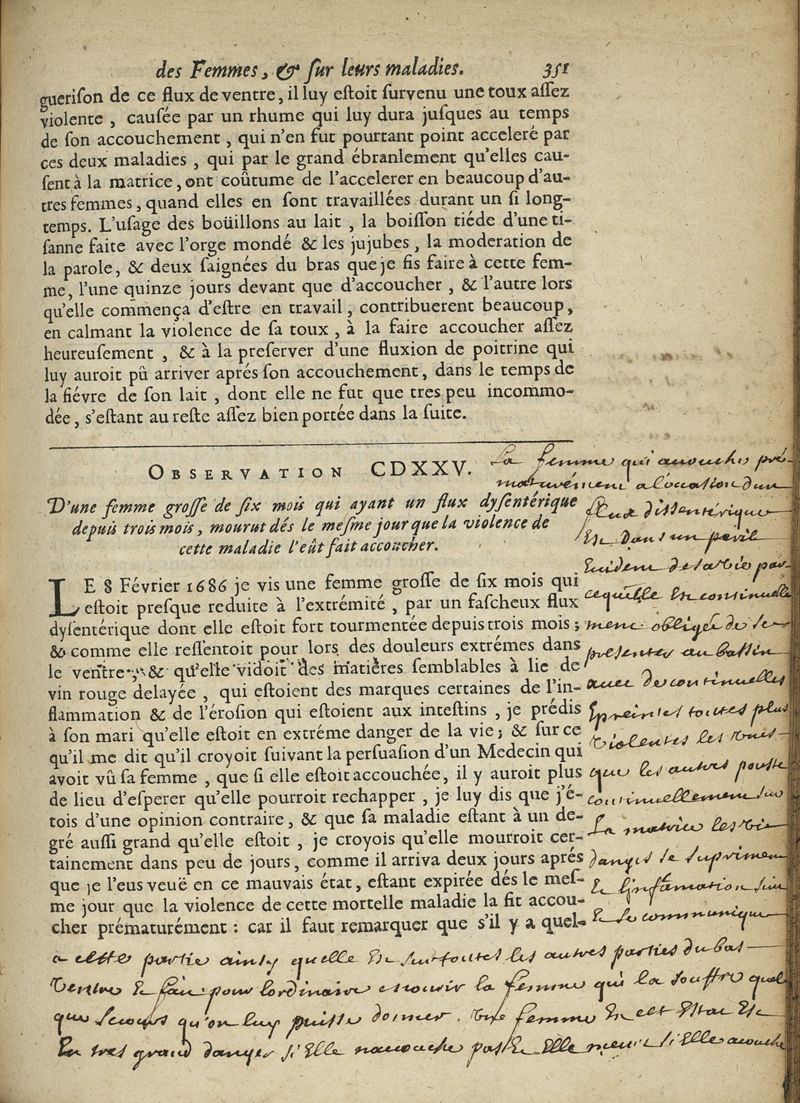 des Femmes, & ſur leurs maladies. 351
gueriſon de ce flux de ventre, il luy eſtoit ſurvenu une toux aſſez
violente, cauſée par un rhume qui luy dura juſques au temps
de ſon accouchement, qui n'en fut pourtant point acceleré par
ces deux maladies, qui par le grand ébranlement qu'elles cau-
ſent à la matrice, ont coûtume de l'accelerer en beaucoup d'au-
tres femmes, quand elles en ſont travaillées durant un ſi long-
temps. L'uſage des boüillons au lait, la boiſſon tiéde d'une ti-
ſanne faite avec l'orge mondé & les jujubes, la moderation de
la parole, & deux ſaignées du bras que je fis faire à cette fem-
me, l'une quinze jours devant que d'accoucher, & l'autre lors
qu'elle commença d'eſtre en travail, contribuerent beaucoup,
en calmant la violence de ſa toux, à la faire accoucher aſſez
heureuſement, & à la preſerver d'une fluxion de poitrine qui
luy auroit pû arriver aprés ſon accouchement, dans le temps de
la fiévre de ſon lait, dont elle ne fut que tres peu incommo-
dée, s'eſtant au reſte aſſez bien portée dans la ſuite.
OBSERVATION CDXXV.
D'une femme groſſe de ſix mois qui ayant un flux dyſentérique
depuis trois mois, mourut dés le meſme jour que la violence de
cette maladie l'eût fait accoucher.
LE 8 Février 1686 je vis une femme groſſe de ſix mois qui
eſtoit preſque reduite à l'extrémité, par un faſcheux flux
dyſentérique dont elle eſtoit fort tourmentée depuis trois mois;
& comme elle reſſentoit pour lors des douleurs extrémes dans
le ventre, & qu'elle vidoit des matières ſemblables à lie de
vin rouge delayée, qui eſtoient des marques certaines de l'in-
flammation & de l'éroſion qui eſtoient aux inteſtins, je prédis
à ſon mari qu'elle eſtoit en extréme danger de la vie; & ſur ce
qu'il me dit qu'il croyoit ſuivant la perſuaſion d'un Medecin qui
avoit vû ſa femme, que ſi elle eſtoit accouchée, il y auroit plus
de lieu d'eſperer qu'elle pourroit rechapper, je luy dis que j'é-
tois d'une opinion contraire, & que ſa maladie eſtant à un de-
gré auſſi grand qu'elle eſtoit, je croyois qu'elle mourroit cer-
tainement dans peu de jours, comme il arriva deux jours aprés
que je l'eus veuë en ce mauvais état, eſtant expirée dés le meſ-
me jour que la violence de cette mortelle maladie la fit accou-
cher prématurément: car il faut remarquer que s'il y a quel-
La femme qui acouche pré-
maturément a l'occation d'un
flux dissentérique
Est dans un peril
Euident de sa vie par
ce quelle est continuelle
ment obligée de se
presenter au bassin
auec de continuelles
Epreintes toutes plus
violentes les unes
que les autres
continuellement
La matrice les
danges se supriment
& l'inflamation
& se communique
a cette partie ainsy quelle Est surtoutes les autres parties du bas
ventre & fait pour lordinaire mourir la femme qui la souffre quel
que secours qu'on luy puisse donner. une femme En cet Etat Est
En tres grand danger si Elle nacouche pas & Elle meurt si Elle acouche